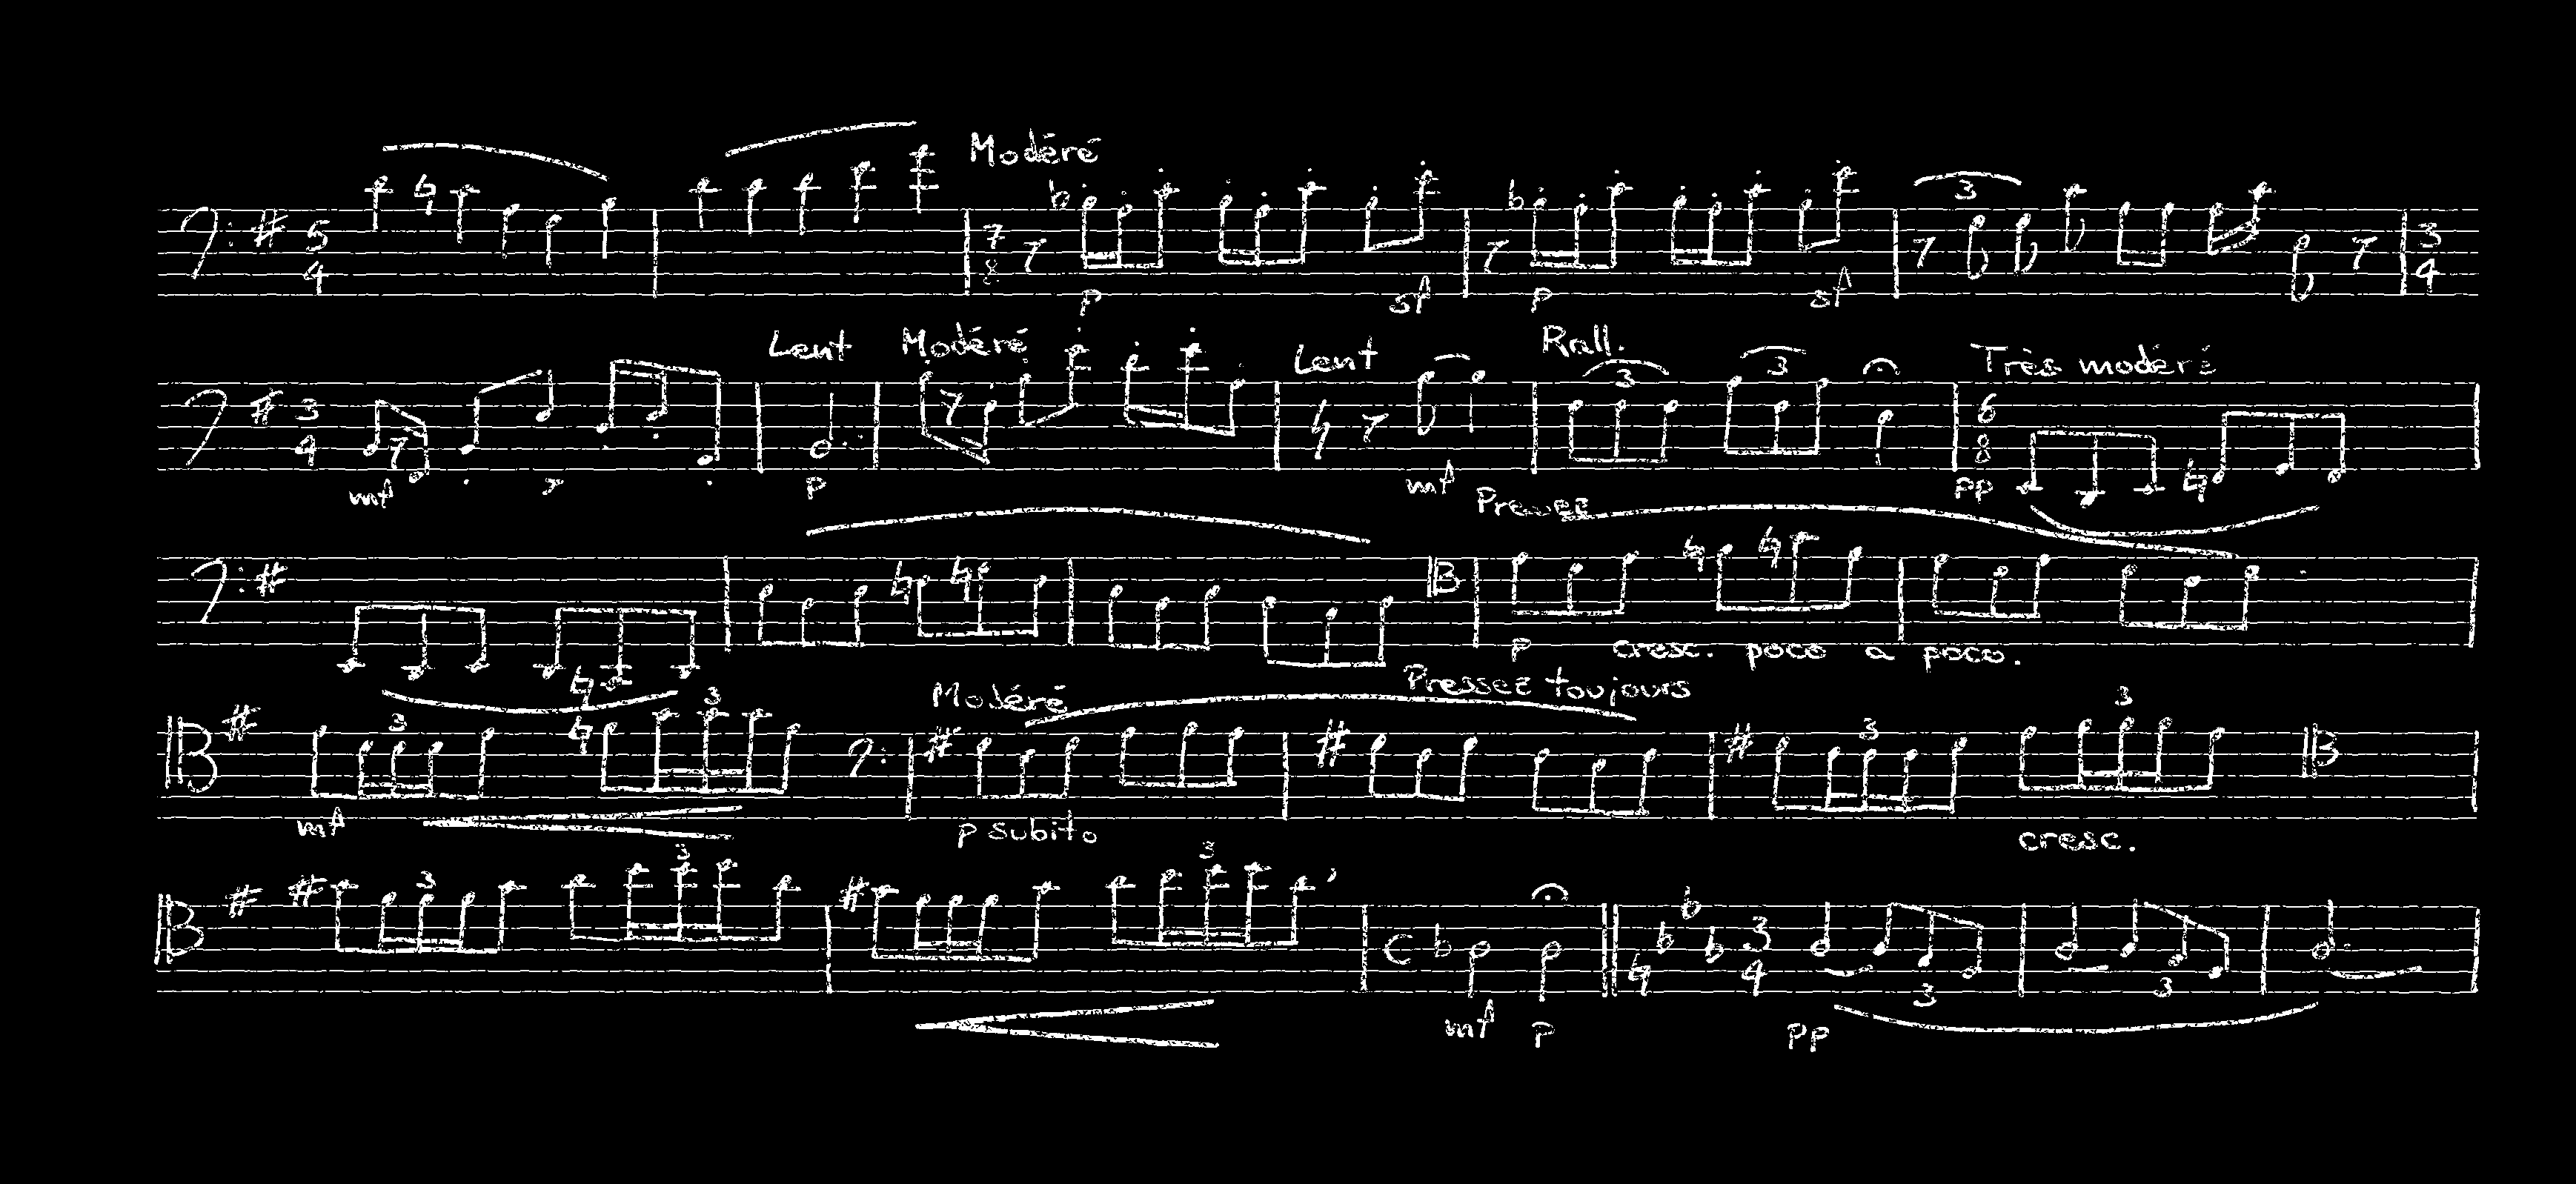 Modéré
5 4 7 8 3 3 4
p sf p sf
Lent Modéré Lent Rall. Très modéré
3 4 3 3 6 8
mf p mf pp
Pressez
p cresc. poco a poco.
Modéré Pressez toujours
3 3 3 3
mf p subito cresc.
3 3 3 3 4 3 3
mf p pp